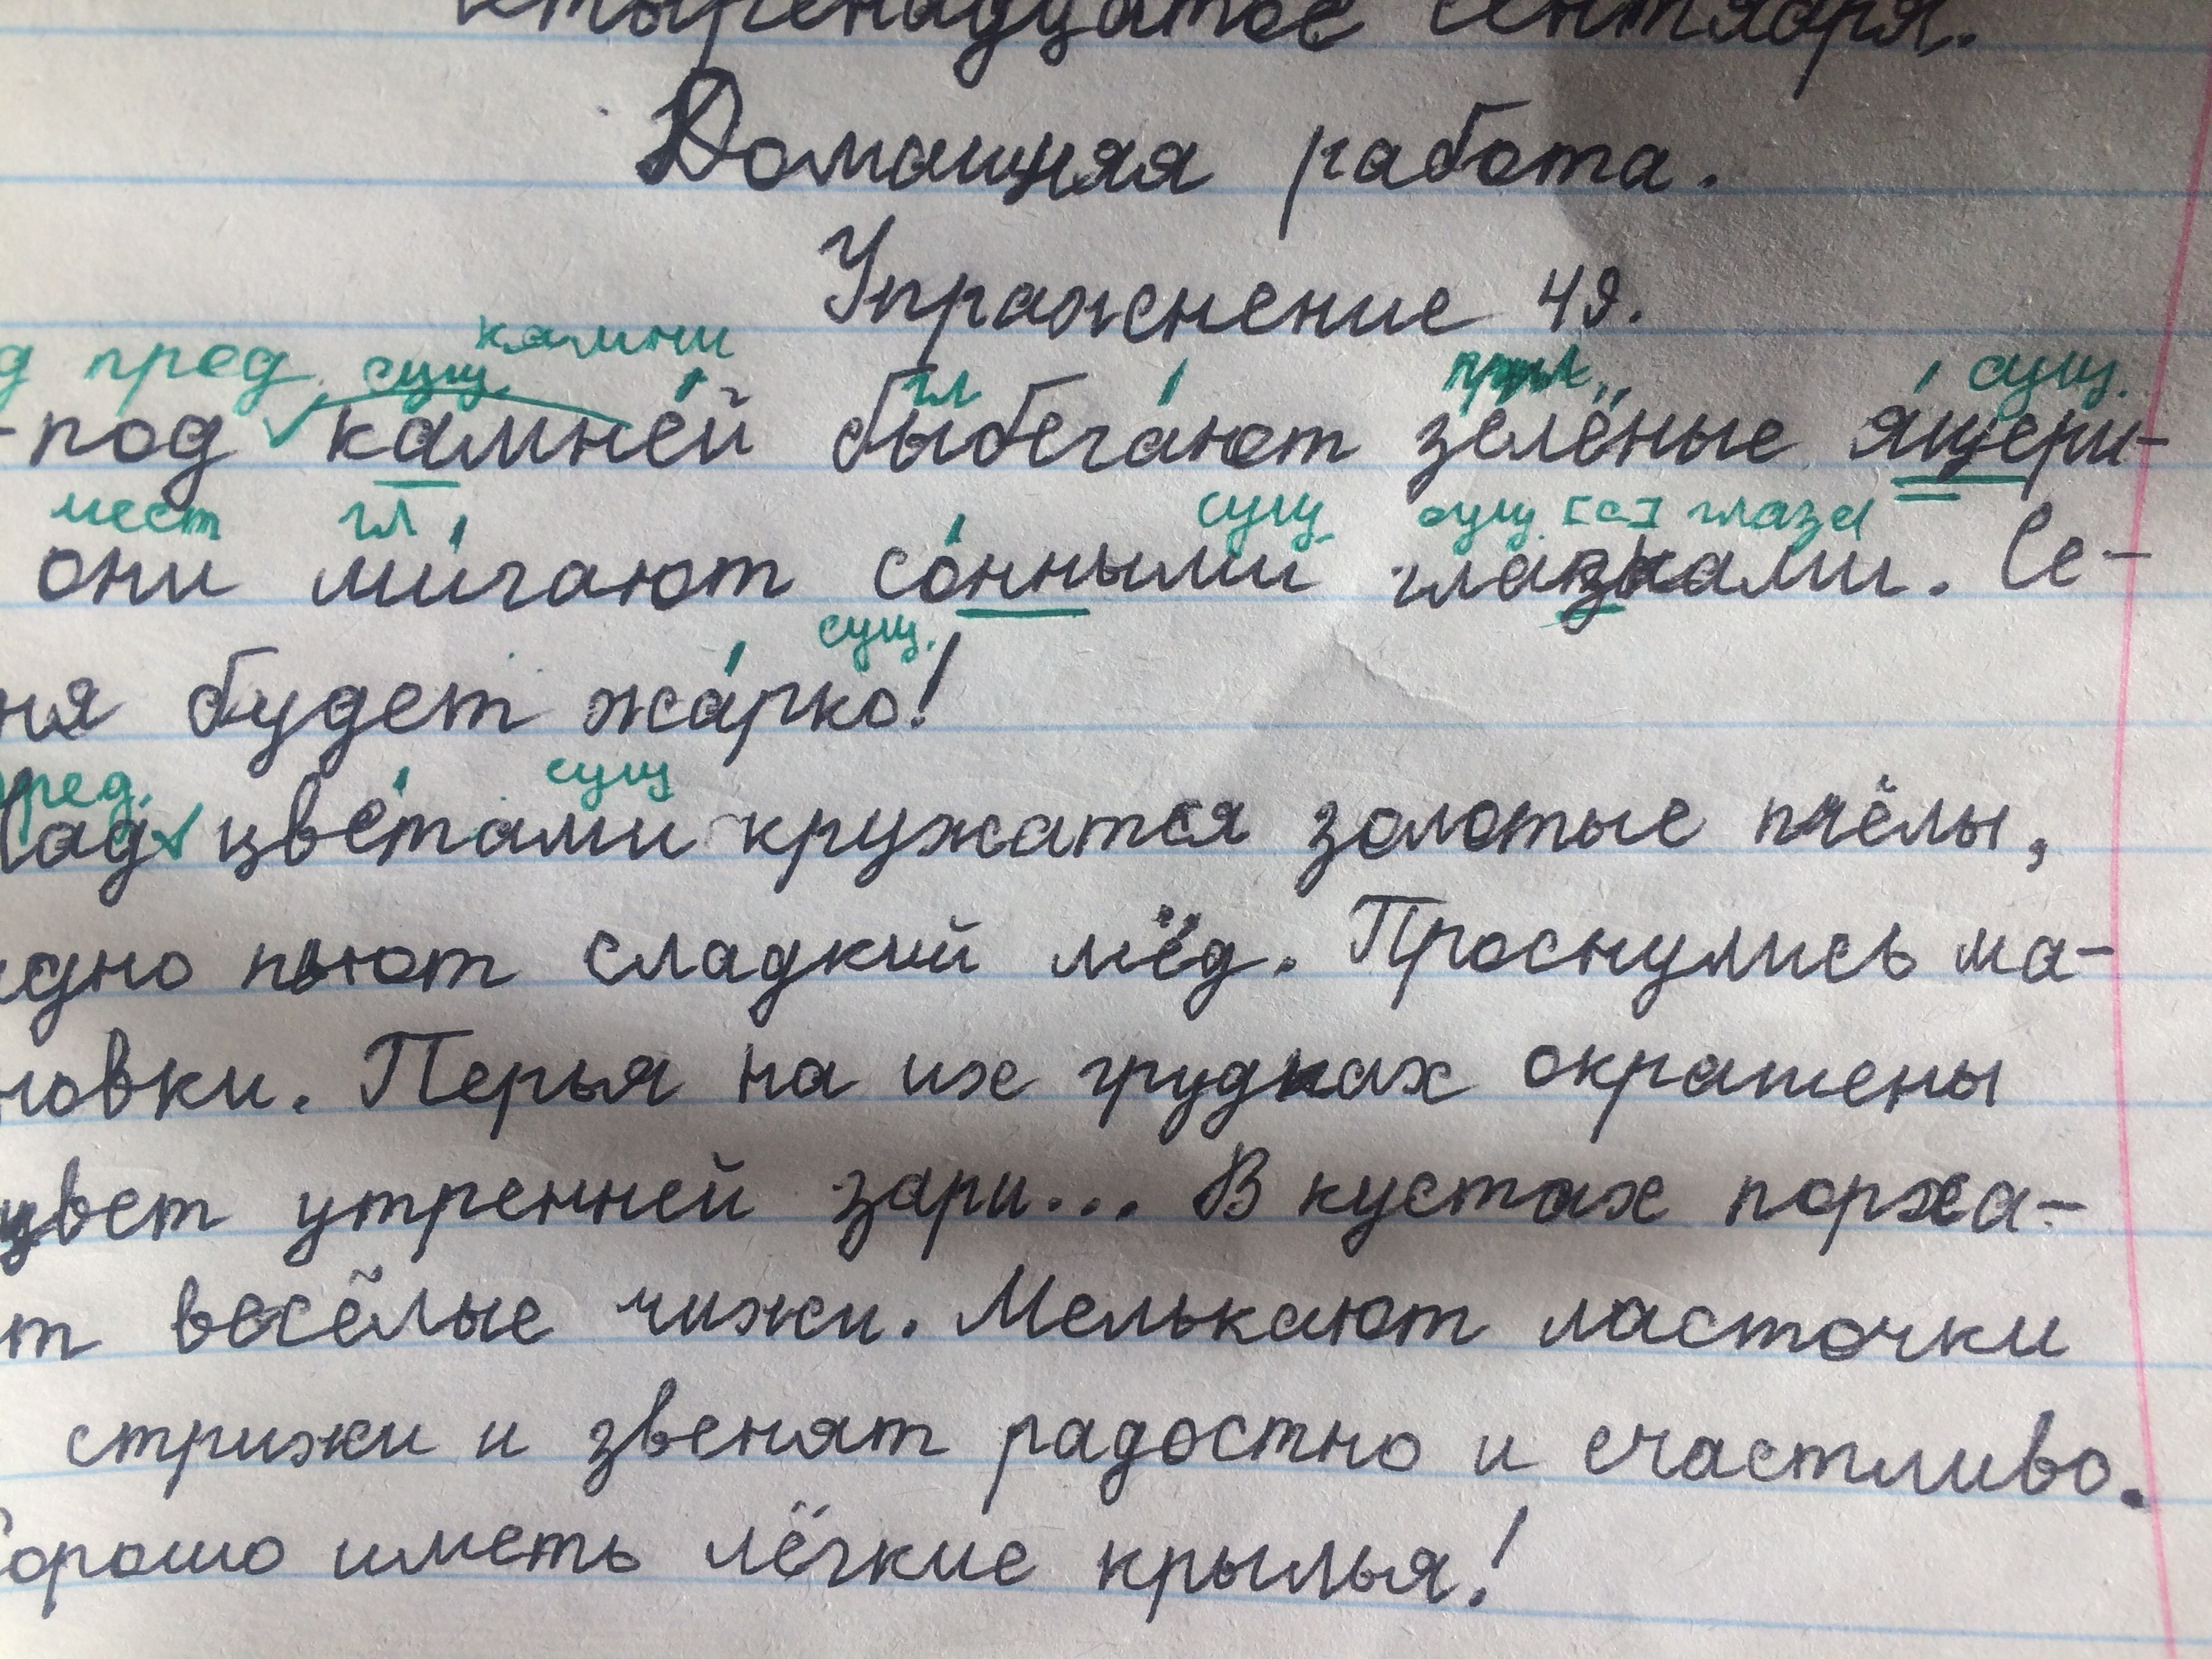 тыренадцатое сентября.
Домашняя работа.
Упражнение 49.
пред сущ. камни гл прил. сущ.
-под камней выбегают зелёные ящери-
мест гл сущ. сущ. [с] глаза
они мигают сонными глазками. Се-
сущ.
ня будет жарко!
пред. сущ
Над цветами кружатся золотые пчёлы,
дно пьют сладкий мёд. Проснулись ма-
новки. Перья на их грудках окрашены
цвет утренней зари... В кустах порха-
т весёлые чижи. Мелькают ласточки
стрижи и звенят радостно и счастливо.
Хорошо иметь лёгкие крылья!